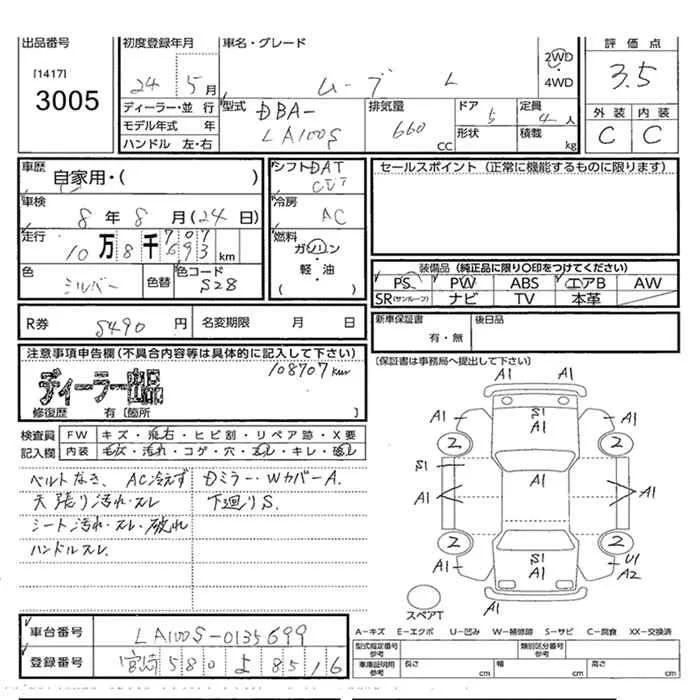 出品番号
[1417]
3005
初度登録年月
24 5月
車名・グレード
ムーブ L
2WD
・
4WD
評価点
3.5
外装 内装
C C
ディーラー・並行
モデル年式 年
ハンドル 左・右
型式 DBA-
LA100S
排気量
660
CC
ドア 5
形状
定員
4人
積載
kg
車歴
自家用・( )
車検
8年8月(24日)
走行
10万8千707
693 km
色
シルバー
色替
色コード
S28
シフト DAT
CVT
冷房
AC
燃料
ガソリン
軽・油
( )
セールスポイント (正常に機能するものに限ります)
装備品(純正品に限り○印をつけてください)
PS PW ABS エアB AW
SR(サンルーフ) ナビ TV 本革
R券 5490円 名変期限 月 日
新車保証書
有・無
後日品
(保証書は事務局へ提出して下さい)
注意事項申告欄(不具合内容等は具体的に記入して下さい)
108707km
ディーラー出品
修復歴 有〔箇所 〕
検査員 FW キズ・飛石・ヒビ割・リペア跡・X要
記入欄 内装 キズ・汚れ・コゲ・穴・スレ・キレ・破レ
ベルトなき、AC冷えず
天張り汚れ・スレ
シート汚れ・スレ・破れ
ハンドルスレ、
Dミラー・WカバーA.
下廻りS.
A1 A1
A1 S1 A1 A1
2 2
S1
A1 A1 A1
2 2
A1 S1 A1 U1 A2
A1 A1
スペアT
A-キズ E-エクボ U-凹み W-補修跡 S-サビ C-腐食 XX-交換済
車台番号 LA100S-0135699
登録番号 宮崎 580 よ 8516
型式指定番号
参考
類別区分番号
参考
車庫証明用
参考
長さ cm 幅 cm 高さ cm